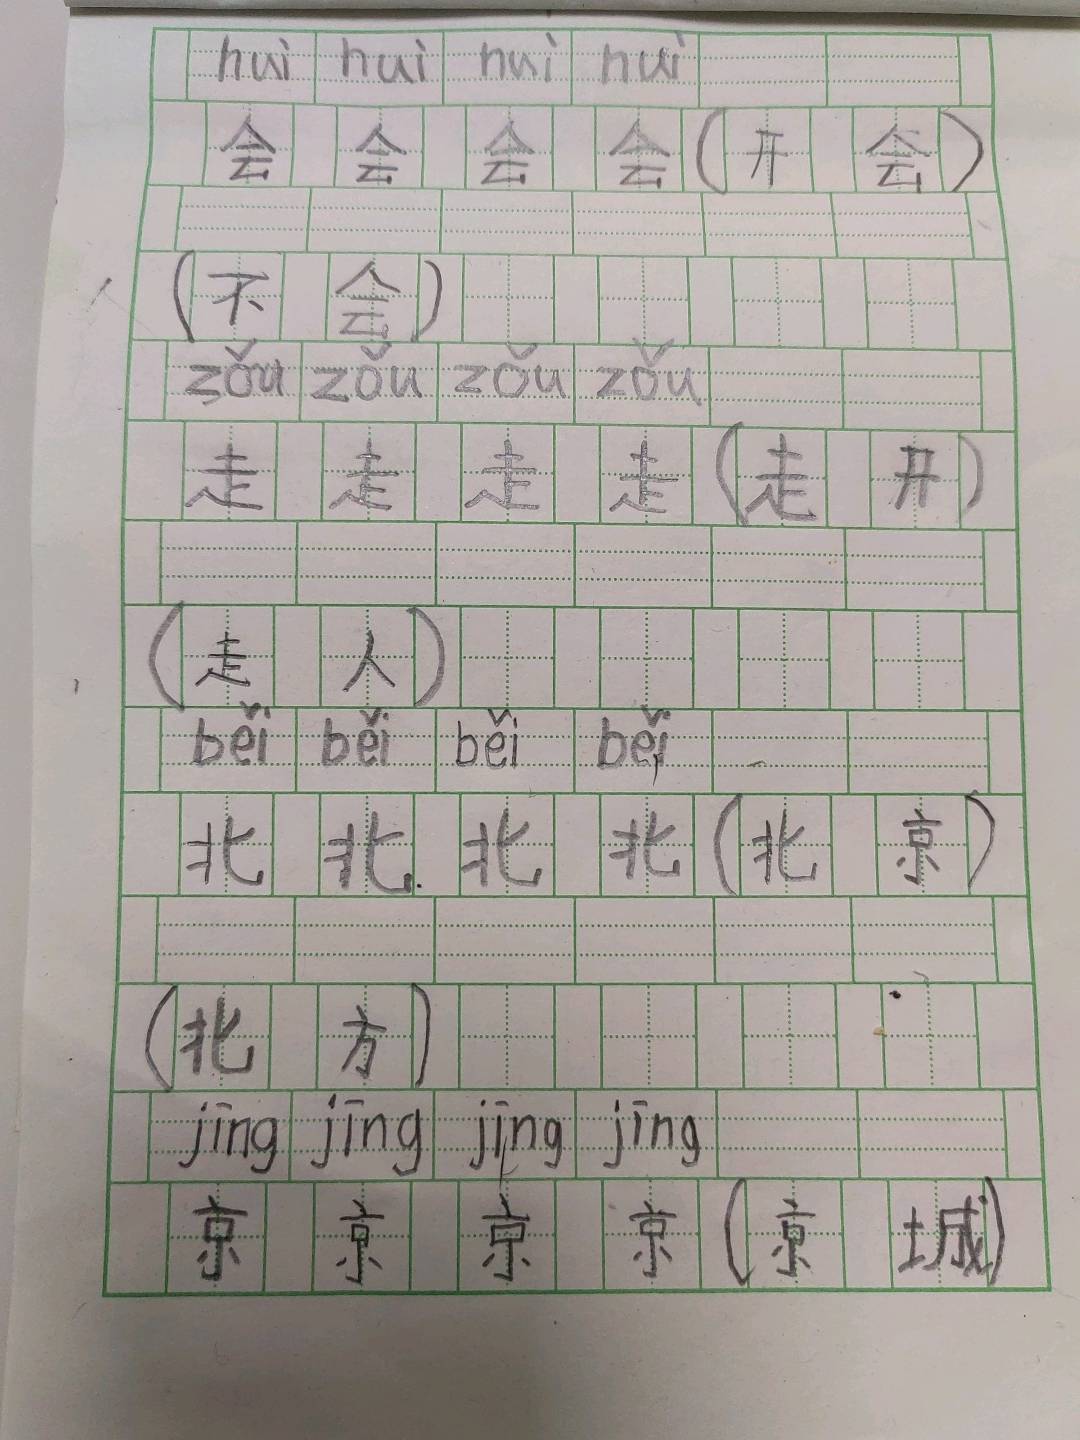 huì huì huì huì
会 会 会 会 (开 会)
(不 会)
zǒu zǒu zǒu zǒu
走 走 走 走 (走 开)
(走 人)
běi běi běi běi
北 北 北 北 (北 京)
(北 方)
jīng jīng jīng jīng
京 京 京 京 (京 城)